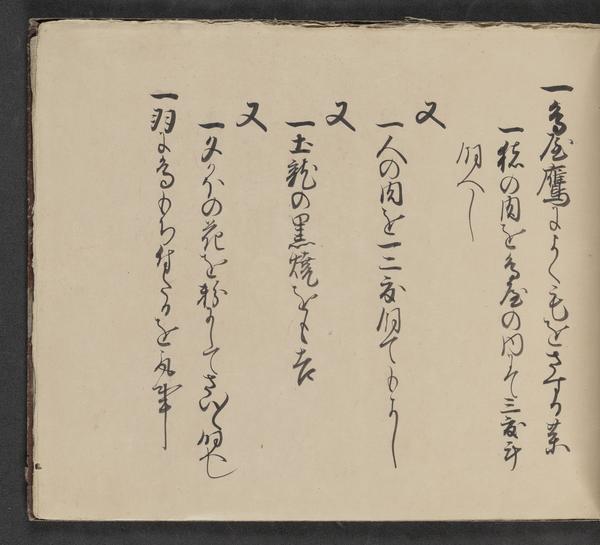 一鳥屋鷹によく毛をさする薬
一猿の肉を鳥屋の内にて三度斗
飼へし
又
一人の肉を一二度飼てもよし
又
一土龍の黒焼をも吉
又
一夕かほの花を粉にしてさい〳〵飼へし
一羽に鳥もち付たるを取事